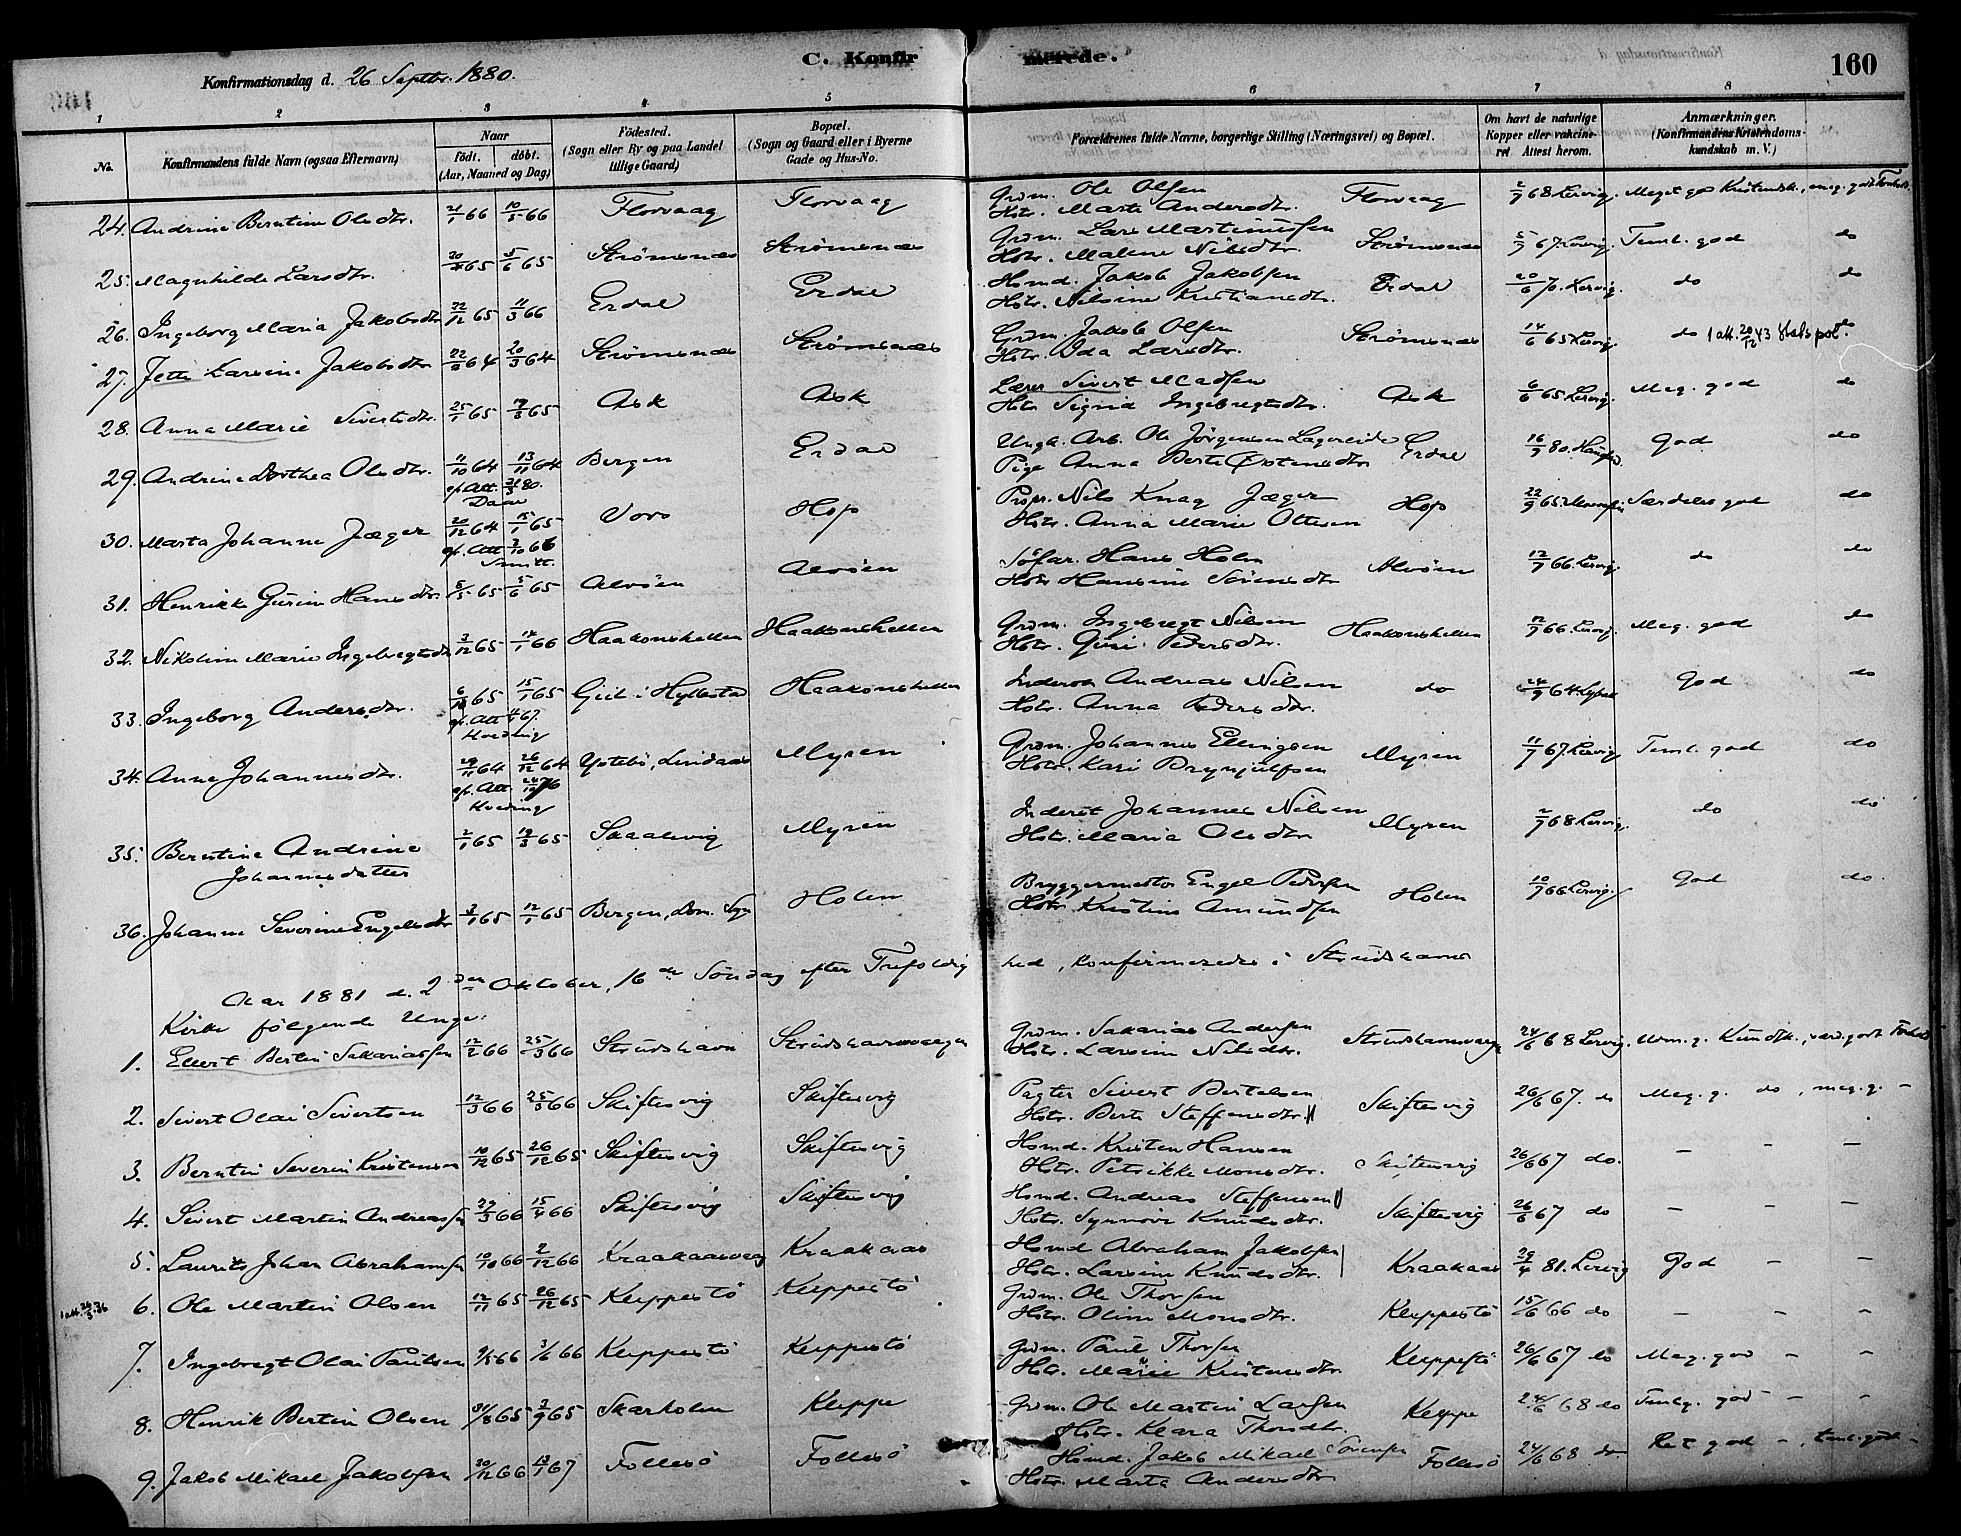 C. Konfirmerede.
160
Konfirmationsdag d. 26 Septbr. 1880.
1 2 3 4 5 6 7 8
No. Konfirmandens fulde Navn (ogsaa Efternavn) Naar født. døbt. (Aar, Maaned og Dag) Fødested. (Sogn eller By og paa Landet tillige Gaard) Bopæl. (Sogn og Gaard eller i Byerne Gade og Hus-No. Forældrenes fulde Navne, borgerlige Stilling (Næringsvei) og Bopæl. Om havt de naturlige Kopper eller vakcineret Attest herom. Anmærkninger. (Konfirmandens Kristendomskundskab m. V.)
24. Andrine Berntine Olsdtr. 21/1 66 10/5 66 Florvaag Florvaag Grdm. Ole Olsen Hstr. Marte Andersdtr. Florvaag 2/7 68 Lervig. Meget god Kristendsk., meg. godt Forhold
25. Magnhilde Larsdtr. 65 5/6 65 Strømsnæs Strømsnæs Grdm. Lars Martinussen Hstr. Malene Nilsdtr. Strømsnæs 67. Lervig. Teml. god do
26. Ingeborg Maria Jakobsdtr 22/12 65 11/3 66 Erdal Erdal Hsmd. Jakob Jakobsen Hstr. Nilsine Kristiansdtr. Erdal 20/6 70. Lervig. do do
27. Jette Larsine Jakobsdtr 22/2 64 20/3 64 Strømsnæs Strømsnæs Grdm. Jakob Olsen Hstr. Ida Larsdtr. Strømsnæs 14/6 65 Lervig. do 1 att. 20/12 43 Stats pol. do
28. Anna Marie Sivertsdtr. 25/1 65 65 Ask Ask Lærer Sivert Madsen Hstr Sigrid Ingebregtsdtr. Ask 6/6 65 Lervig. Meg. god do
29. Andrine Dorthea Olsdtr. 11/10 64 13/11 64 Bergen Erdal Ungk. Arb. Ole Jörgensen Pige Anna Berte Østensdtr Erdal 16/9 80. God do
ef. Att. 80.
Daae
30. Marta Johanne Jæger 20/12 64 15/1 65 Voss Hop Propr. Nils Knag Jæger Hstr. Anna Marie Ottesen Hop 22/9 65 Særdeles god do
ef. Att 3/10 66
Smitt.
31. Henrikke Gurine Hansdtr. 5/5 65 5/6 65 Alvöen Alvöen Söfar. Hans Holm Hstr Hansine Sörensdtr Alvöen 12/7 66. Lervig. do do
32. Nikoline Marie Ingebregtsdtr 3/12 65 14/1 66 Haakonshellen Haakonshellen Grdm. Ingebregt Nilsen Hstr. Guri Pedersdtr. Haakonshellen 12/7 66. Lervig. Meg. god do
33. Ingeborg Andersdtr. 65 15/1 65 Hyllestad Haakonshellen Inderst Andreas Nilsen Hstr. Anna Pedersdtr. do 24/9 64 God do
ef. Att 67.
Hveding
34. Anne Johannesdtr. 29/11 64 26/12 64 Lindaas Myren Grdm. Johannes Ellingsen Hstr. Kari Brynjulfsen Myren 11/7 67. Lervig. Teml. god do
ef. Att. 76
Hveding
35. Berntine Andrine 2/1 65 19/3 65 Skaalevig Myren Inderst Johannes Nilsen Hstr. Maria Olsdtr Myren 2/7 68 Lervig. do do
Johannesdatter
36. Johanne Severine Engelsdtr 3/1 65 12/1 65 Bergen, Dom. Sogn Holen Bryggermester Engel Pedersen Hstr. Kristine Amundsen Holen 10/7 66 Lervig. God do.
Aar 1881 d. 2den Oktober, 16de Söndag efter Trefoldighed, konfirmeredes i Strudshavns
Kirke fölgende Unge:
1. Ellert Bertin Sakariassen 12/2 66 25/3 66 Strudshavn Strudshavnsvaagen Grdm. Sakarias Andersen Hstr. Larsine Nilsdtr. Strudshavnsvaagen 24/6 68 Lervig. Kundsk., særd. godt Forhold
2. Sivert Olai Sivertsen 12/3 66 25/3 66 Skiftesvig Skiftesvig Pagter Sivert Bertelsen Hstr. Berte Steffensdtr Skiftesvig 26/6 67. do Meg. g. do, meg. g. -
3. Berntin Severin Kristensen 10/12 65 26/12 65 Skiftesvig Skiftesvig Hsmd. Kristen Hansen Hstr. Petrikke Monsdtr. Skiftesvig 26/6 67 do. - - -
4. Sivert Martin Andreassen 29/3 66 15/4 66 Skiftesvig Skiftesvig Hsmd. Andreas Steffensen Hstr. Synnöve Knudsdtr. Skiftesvig 26/6 67 do - - -
5. Laurits Johan Abrahamsen 10/10 66 2/12 66 Kraakaasvaag Kraakaas Hsmd Abraham Jakobsen Hstr. Larsine Knudsdtr. Kraakaas 29/4 81. Lervig God - -
1 att. 36 6. Ole Martin Olsen 12/11 65 26/12 65 Kleppestö Kleppestö Grdm. Ole Thorsen Hstr. Oline Monsdtr. Kleppestö 15/6 66 do - - -
7. Ingebregt Olai Paulsen 9/5 66 3/6 66 Kleppestö Kleppestö Grdm. Paul Thorsen Hstr. Marie Kristensdtr Kleppestö 26/6 67 do Meg. god - -
8. Henrik Bertin Olsen 31/8 65 3/9 65 Skarholm Kleppe Grdm. Ole Martin Larsen Hstr. Klara Thorsdtr. Kleppe 24/6 68 do Temlig. god - -
9. Jakob Mikael Jakobsen 30/12 66 13/1 67 Follesö Follesö Hsmd. Jakob Mikael Sörensen Hstr. Marta Andersdtr Follesö 24/6 68 do Ret god -, teml. godt -